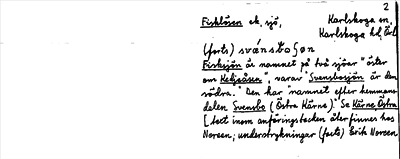 2
Fisklösen ek, sjö, Karlskoga sn,
Karlskoga hd, Örl
(forts) svánsboʃøn
Fisksjön är namnet på två sjöar "öster
om Kedjeåsen", varav "Svensbosjön är den
södra." Den har "namnet efter hemmans-
delen Svensbo (Östra Kärne)." Se Kärne, Östra
[text inom anföringstecken återfinnes hos
Noreen; understrykningar (forts) Erik Noreen